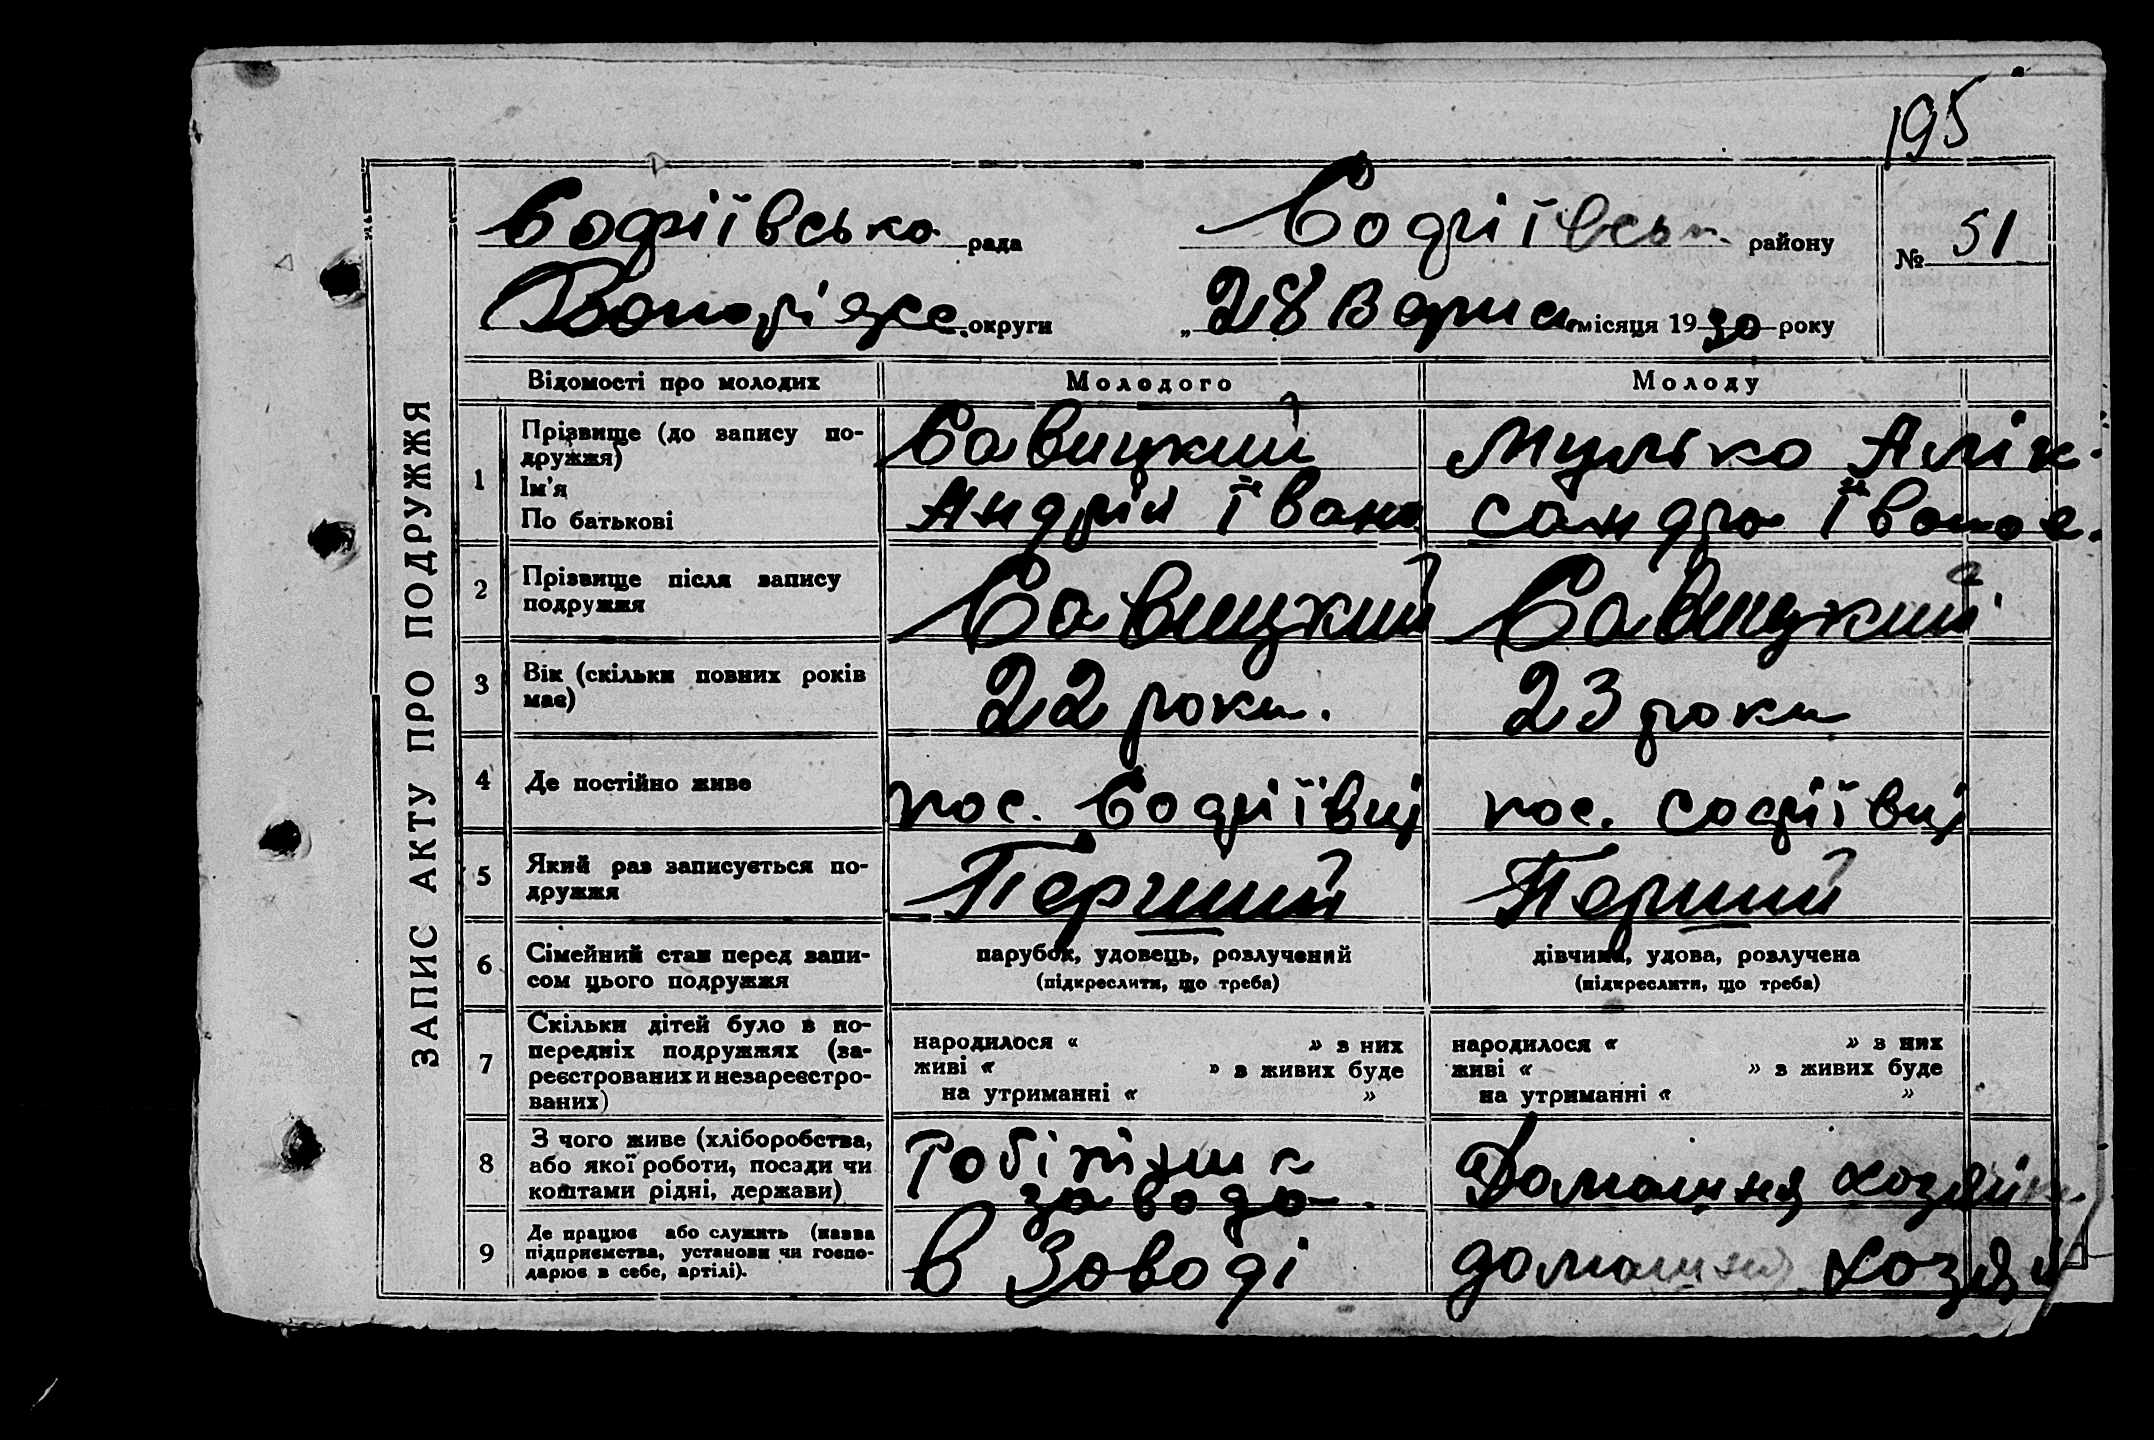 195
Софіївсько рада
Софіївськ району
№ 51
Запорізьке округи
„28 Вериса місяця 1930 року
ЗАПИС АКТУ ПРО ПОДРУЖЖЯ
Відомості про молодих
Молодого
Молоду
1
Прізвище (до запису по-
дружжя)
Ім'я
По батькові
Савицкий
Андрій Івано
Мулько Алік-
сандра Іванов.
2
Прізвище після запису
подружжя
Савицкий
Савицкий
3
Вік (скільки повних років
має)
22 роки.
23 роки
4
Де постійно живе
пос. Софіївці
пос. Софіївці
5
Який раз записується по-
дружжя
Перший
Перший
6
Сімейний стан перед запи-
сом цього подружжя
парубок, удовець, розлучений
(підкреслити, що треба)
дівчина, удова, розлучена
(підкреслити, що треба)
7
Скільки дітей було в по-
передніх подружжях (за-
реєстрованих и незареєстро-
ваних)
народилося « » з них
живі « » з живих буде
на утриманні « »
народилося « » з них
живі « » з живих буде
на утриманні « »
8
З чого живе (хліборобства,
або якої роботи, посади чи
коштами рідні, держави)
завода
Домашня хозяйн
9
Де працює або служить (назва
підприємства, установи чи госпо-
дарює в себе, артілі).
в Заводі
домашня хозяй